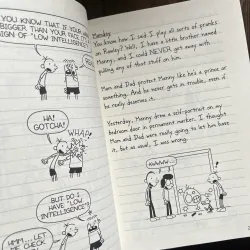 YOU KNOW THAT IF YOUR
BIGGER THAN YOUR FACE, IT'S
SIGN OF "LOW INTELLIGENCE"?
HA!
GOTCHA!
WHAP
BUT DO I
HAVE "LOW
INTELLIGENCE"?
HMM... LET
ME CHECK
Monday
You know how I said I play all sorts of pranks
on Rowley? Well, I have a little brother named
Manny, and I could NEVER get away with
pulling any of that stuff on him.
Mom and Dad protect Manny like he's a prince or
something. And he never gets in trouble, even if
he really deserves it.
Yesterday, Manny drew a self-portrait on my
bedroom door in permanent marker. I thought
Mom and Dad were really going to let him have
it, but as usual, I was wrong.